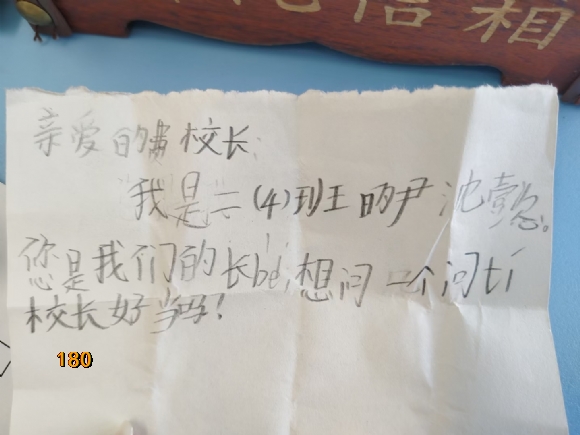 信相
亲爱的 校长:
我是二(4)班王昀尹
您是我们的长bèi,想问一个问tí
校长好当吗!
180